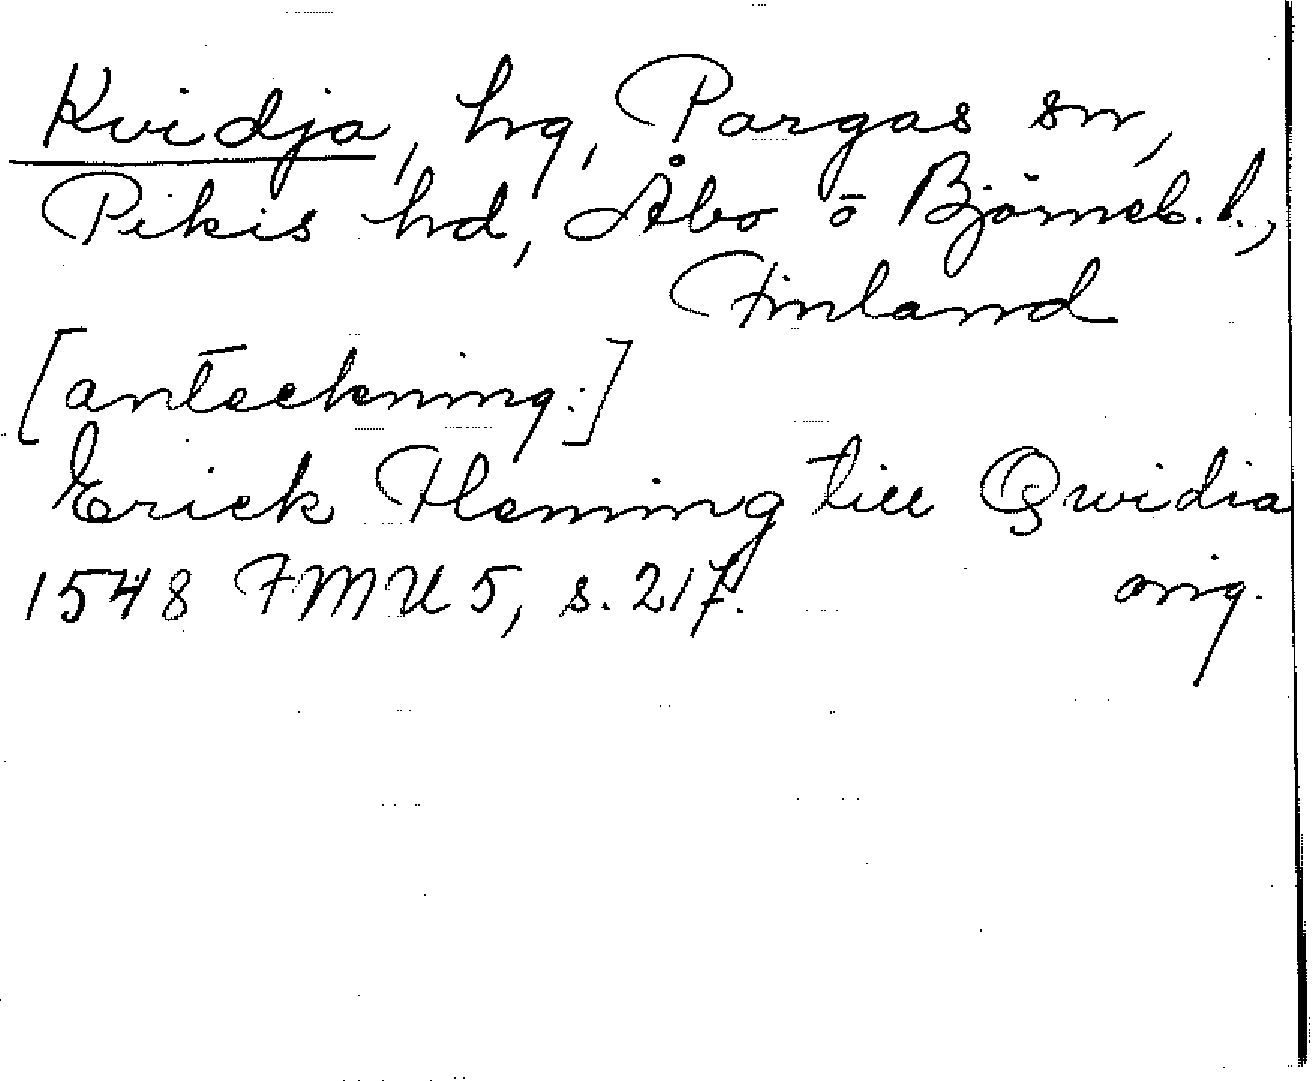 Kvidja, hg, Pargas sn,
Pikis hd, Åbo o Björneb. l.,
Finland
[anteckning:]
Erick Fleming till Qwidia
1548 FMU 5, s. 217. orig.